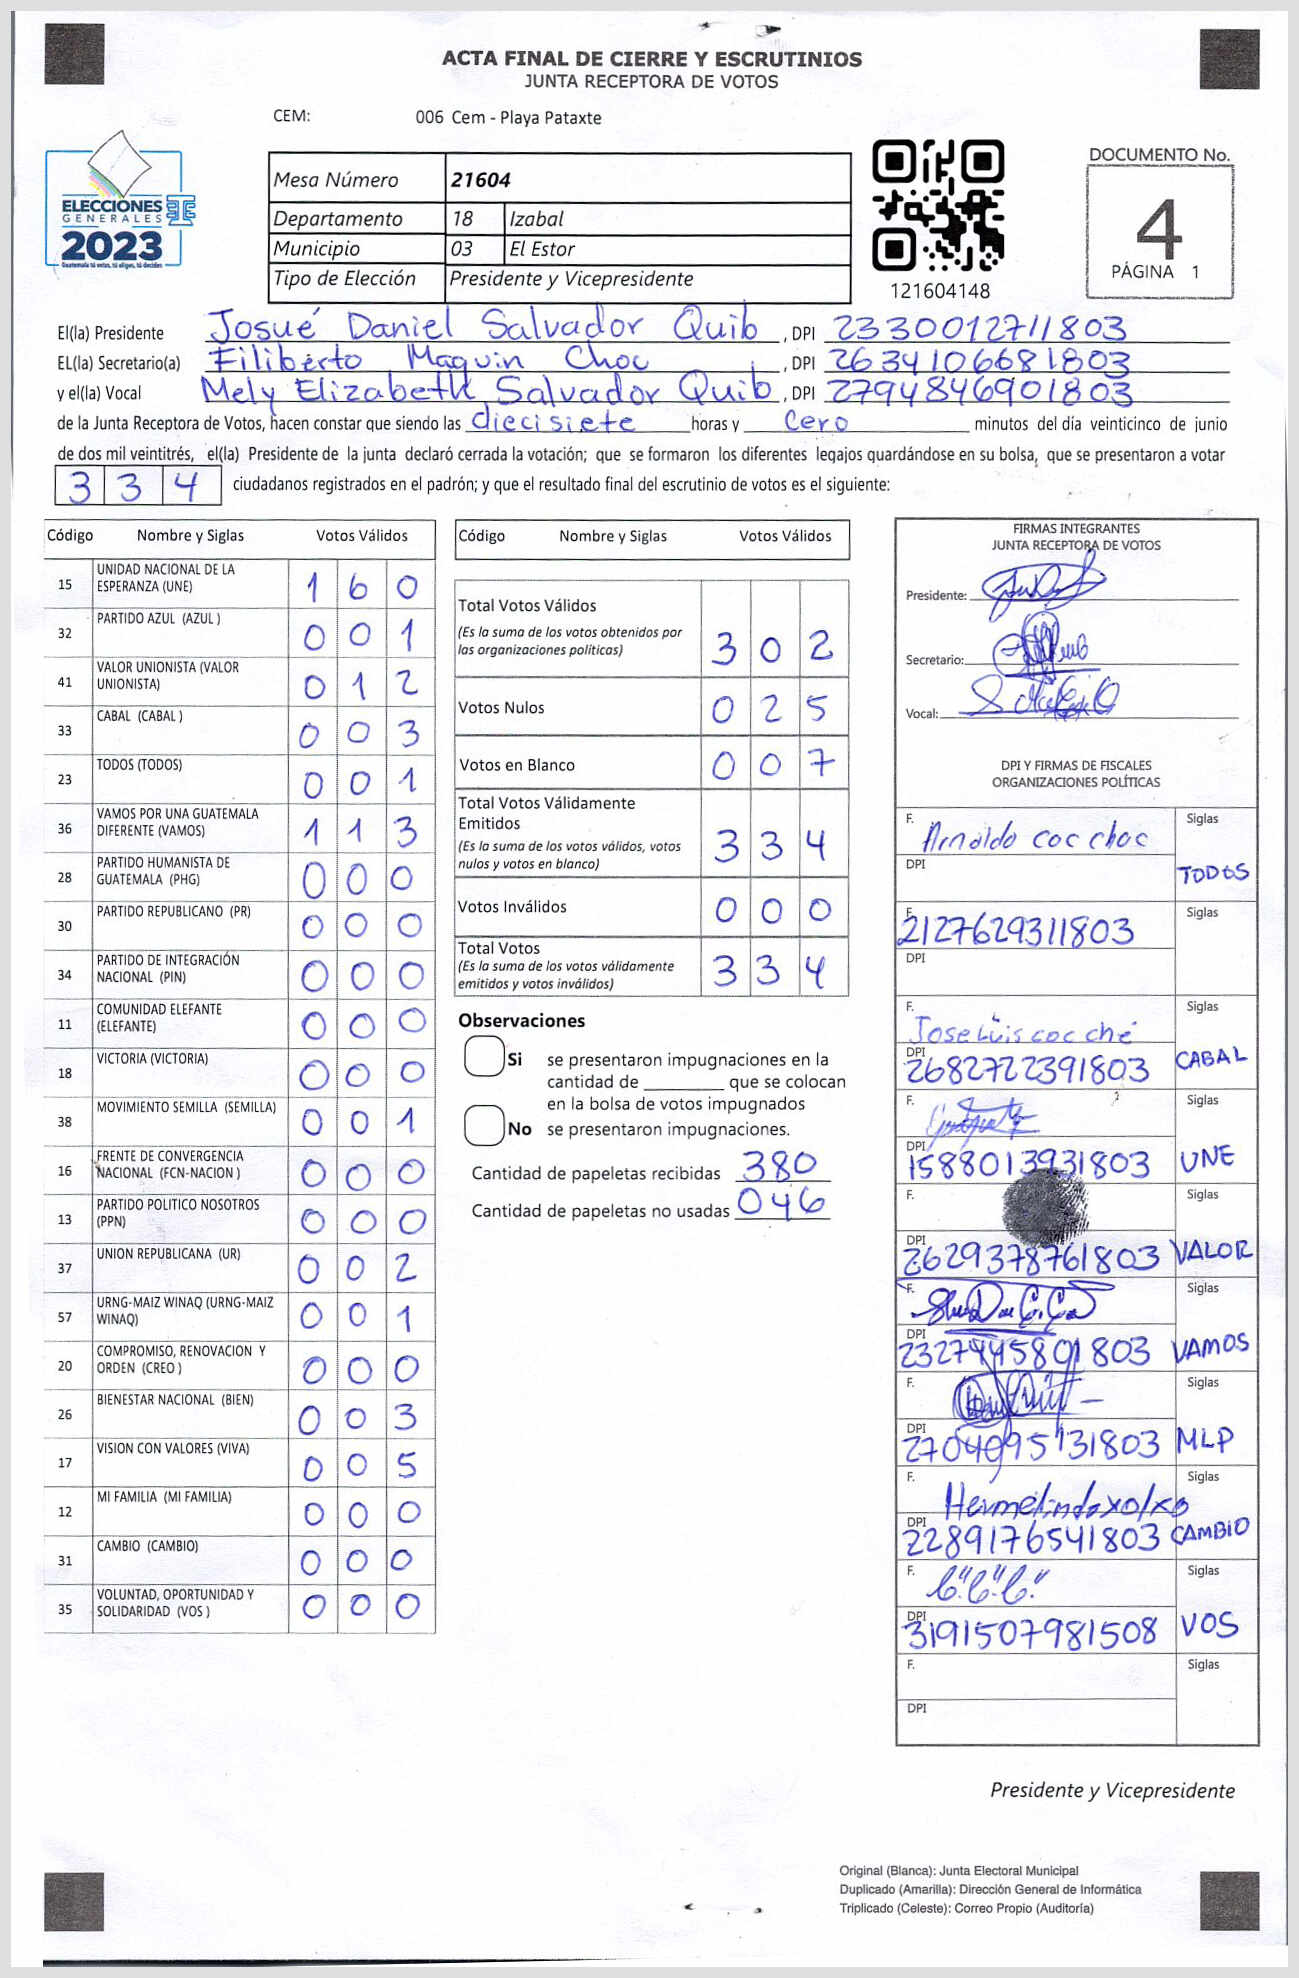 ACTA FINAL DE CIERRE Y ESCRUTINIOS
JUNTA RECEPTORA DE VOTOS
CEM: 006 Cem - Playa Pataxte
ELECCIONES
GENERALES
2023
Guatemala tú votas, tú eliges, tú decides
Mesa Número 21604
Departamento 18 Izabal
Municipio 03 El Estor
Tipo de Elección Presidente y Vicepresidente
121604148
DOCUMENTO No.
4
PÁGINA 1
El(la) Presidente Josué Daniel Salvador Quib, DPI 2330012711803
EL(la) Secretario(a) Filiberto Maquin Choc, DPI 2634106681803
y el(la) Vocal Mely Elizabeth Salvador Quib, DPI 2794846901803
de la Junta Receptora de Votos, hacen constar que siendo las diecisiete horas y cero minutos del día veinticinco de junio
de dos mil veintitrés, el(la) Presidente de la junta declaró cerrada la votación; que se formaron los diferentes legajos guardándose en su bolsa, que se presentaron a votar
334 ciudadanos registrados en el padrón; y que el resultado final del escrutinio de votos es el siguiente:
Código Nombre y Siglas Votos Válidos
15 UNIDAD NACIONAL DE LA ESPERANZA (UNE) 1 6 0
32 PARTIDO AZUL (AZUL ) 0 0 1
41 VALOR UNIONISTA (VALOR UNIONISTA) 0 1 2
33 CABAL (CABAL ) 0 0 3
23 TODOS (TODOS) 0 0 1
36 VAMOS POR UNA GUATEMALA DIFERENTE (VAMOS) 1 1 3
28 PARTIDO HUMANISTA DE GUATEMALA (PHG) 0 0 0
30 PARTIDO REPUBLICANO (PR) 0 0 0
34 PARTIDO DE INTEGRACIÓN NACIONAL (PIN) 0 0 0
11 COMUNIDAD ELEFANTE (ELEFANTE) 0 0 0
18 VICTORIA (VICTORIA) 0 0 0
38 MOVIMIENTO SEMILLA (SEMILLA) 0 0 1
16 FRENTE DE CONVERGENCIA NACIONAL (FCN-NACION ) 0 0 0
13 PARTIDO POLITICO NOSOTROS (PPN) 0 0 0
37 UNION REPUBLICANA (UR) 0 0 2
57 URNG-MAIZ WINAQ (URNG-MAIZ WINAQ) 0 0 1
20 COMPROMISO, RENOVACION Y ORDEN (CREO ) 0 0 0
26 BIENESTAR NACIONAL (BIEN) 0 0 3
17 VISION CON VALORES (VIVA) 0 0 5
12 MI FAMILIA (MI FAMILIA) 0 0 0
31 CAMBIO (CAMBIO) 0 0 0
35 VOLUNTAD, OPORTUNIDAD Y SOLIDARIDAD (VOS ) 0 0 0
Código Nombre y Siglas Votos Válidos
Total Votos Válidos
(Es la suma de los votos obtenidos por
las organizaciones políticas) 3 0 2
Votos Nulos 0 2 5
Votos en Blanco 0 0 7
Total Votos Válidamente
Emitidos
(Es la suma de los votos válidos, votos
nulos y votos en blanco) 3 3 4
Votos Inválidos 0 0 0
Total Votos
(Es la suma de los votos válidamente
emitidos y votos inválidos) 3 3 4
Observaciones
Si se presentaron impugnaciones en la
cantidad de ________ que se colocan
en la bolsa de votos impugnados
No se presentaron impugnaciones.
Cantidad de papeletas recibidas 380
Cantidad de papeletas no usadas 046
FIRMAS INTEGRANTES
JUNTA RECEPTORA DE VOTOS
Presidente:
Secretario:
Vocal:
DPI Y FIRMAS DE FISCALES
ORGANIZACIONES POLÍTICAS
F. Arnoldo coc choc Siglas
DPI TODOS
F. 2127629311803 Siglas
DPI
F. Jose Luis coc ché Siglas
DPI 2682722391803 CABAL
F. Siglas
DPI 1588013931803 UNE
F. Siglas
DPI 2629378761803 VALOR
F. Siglas
DPI 2327445801803 VAMOS
F. Siglas
DPI 2704995131803 MLP
F. Hermelindo xol xo Siglas
DPI 2289176541803 CAMBIO
F. Siglas
DPI 3191507981508 VOS
F. Siglas
DPI
Presidente y Vicepresidente
Original (Blanca): Junta Electoral Municipal
Duplicado (Amarilla): Dirección General de Informática
Triplicado (Celeste): Correo Propio (Auditoría)